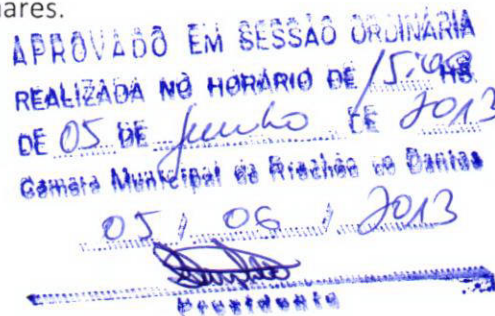 ares.
APROVADO EM SESSÃO ORDINÁRIA
REALIZADA NO HORÁRIO DE 15:00 HS.
DE 05 DE Junho DE 2013
Câmara Municipal de Riachão do Dantas
05 / 06 / 2013
Presidente